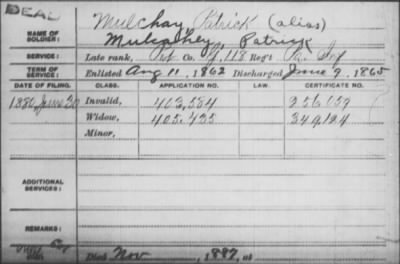 DEAD
Mulchay, Patrick (alias)
NAME OF SOLDIER: Mulcahey, Patrick
SERVICE: Late rank, Pvt. Co. 118 Reg't Pa. Inf
TERM OF SERVICE: Enlisted Aug 11, 1862 Discharged June 9, 1865
DATE OF FILING. CLASS. APPLICATION NO. LAW. CERTIFICATE NO.
1880 June 30 Invalid, 403,584 256,059
Widow, 405,435 349,124
Minor,
ADDITIONAL SERVICES:
REMARKS:
Died Nov, 1887, at